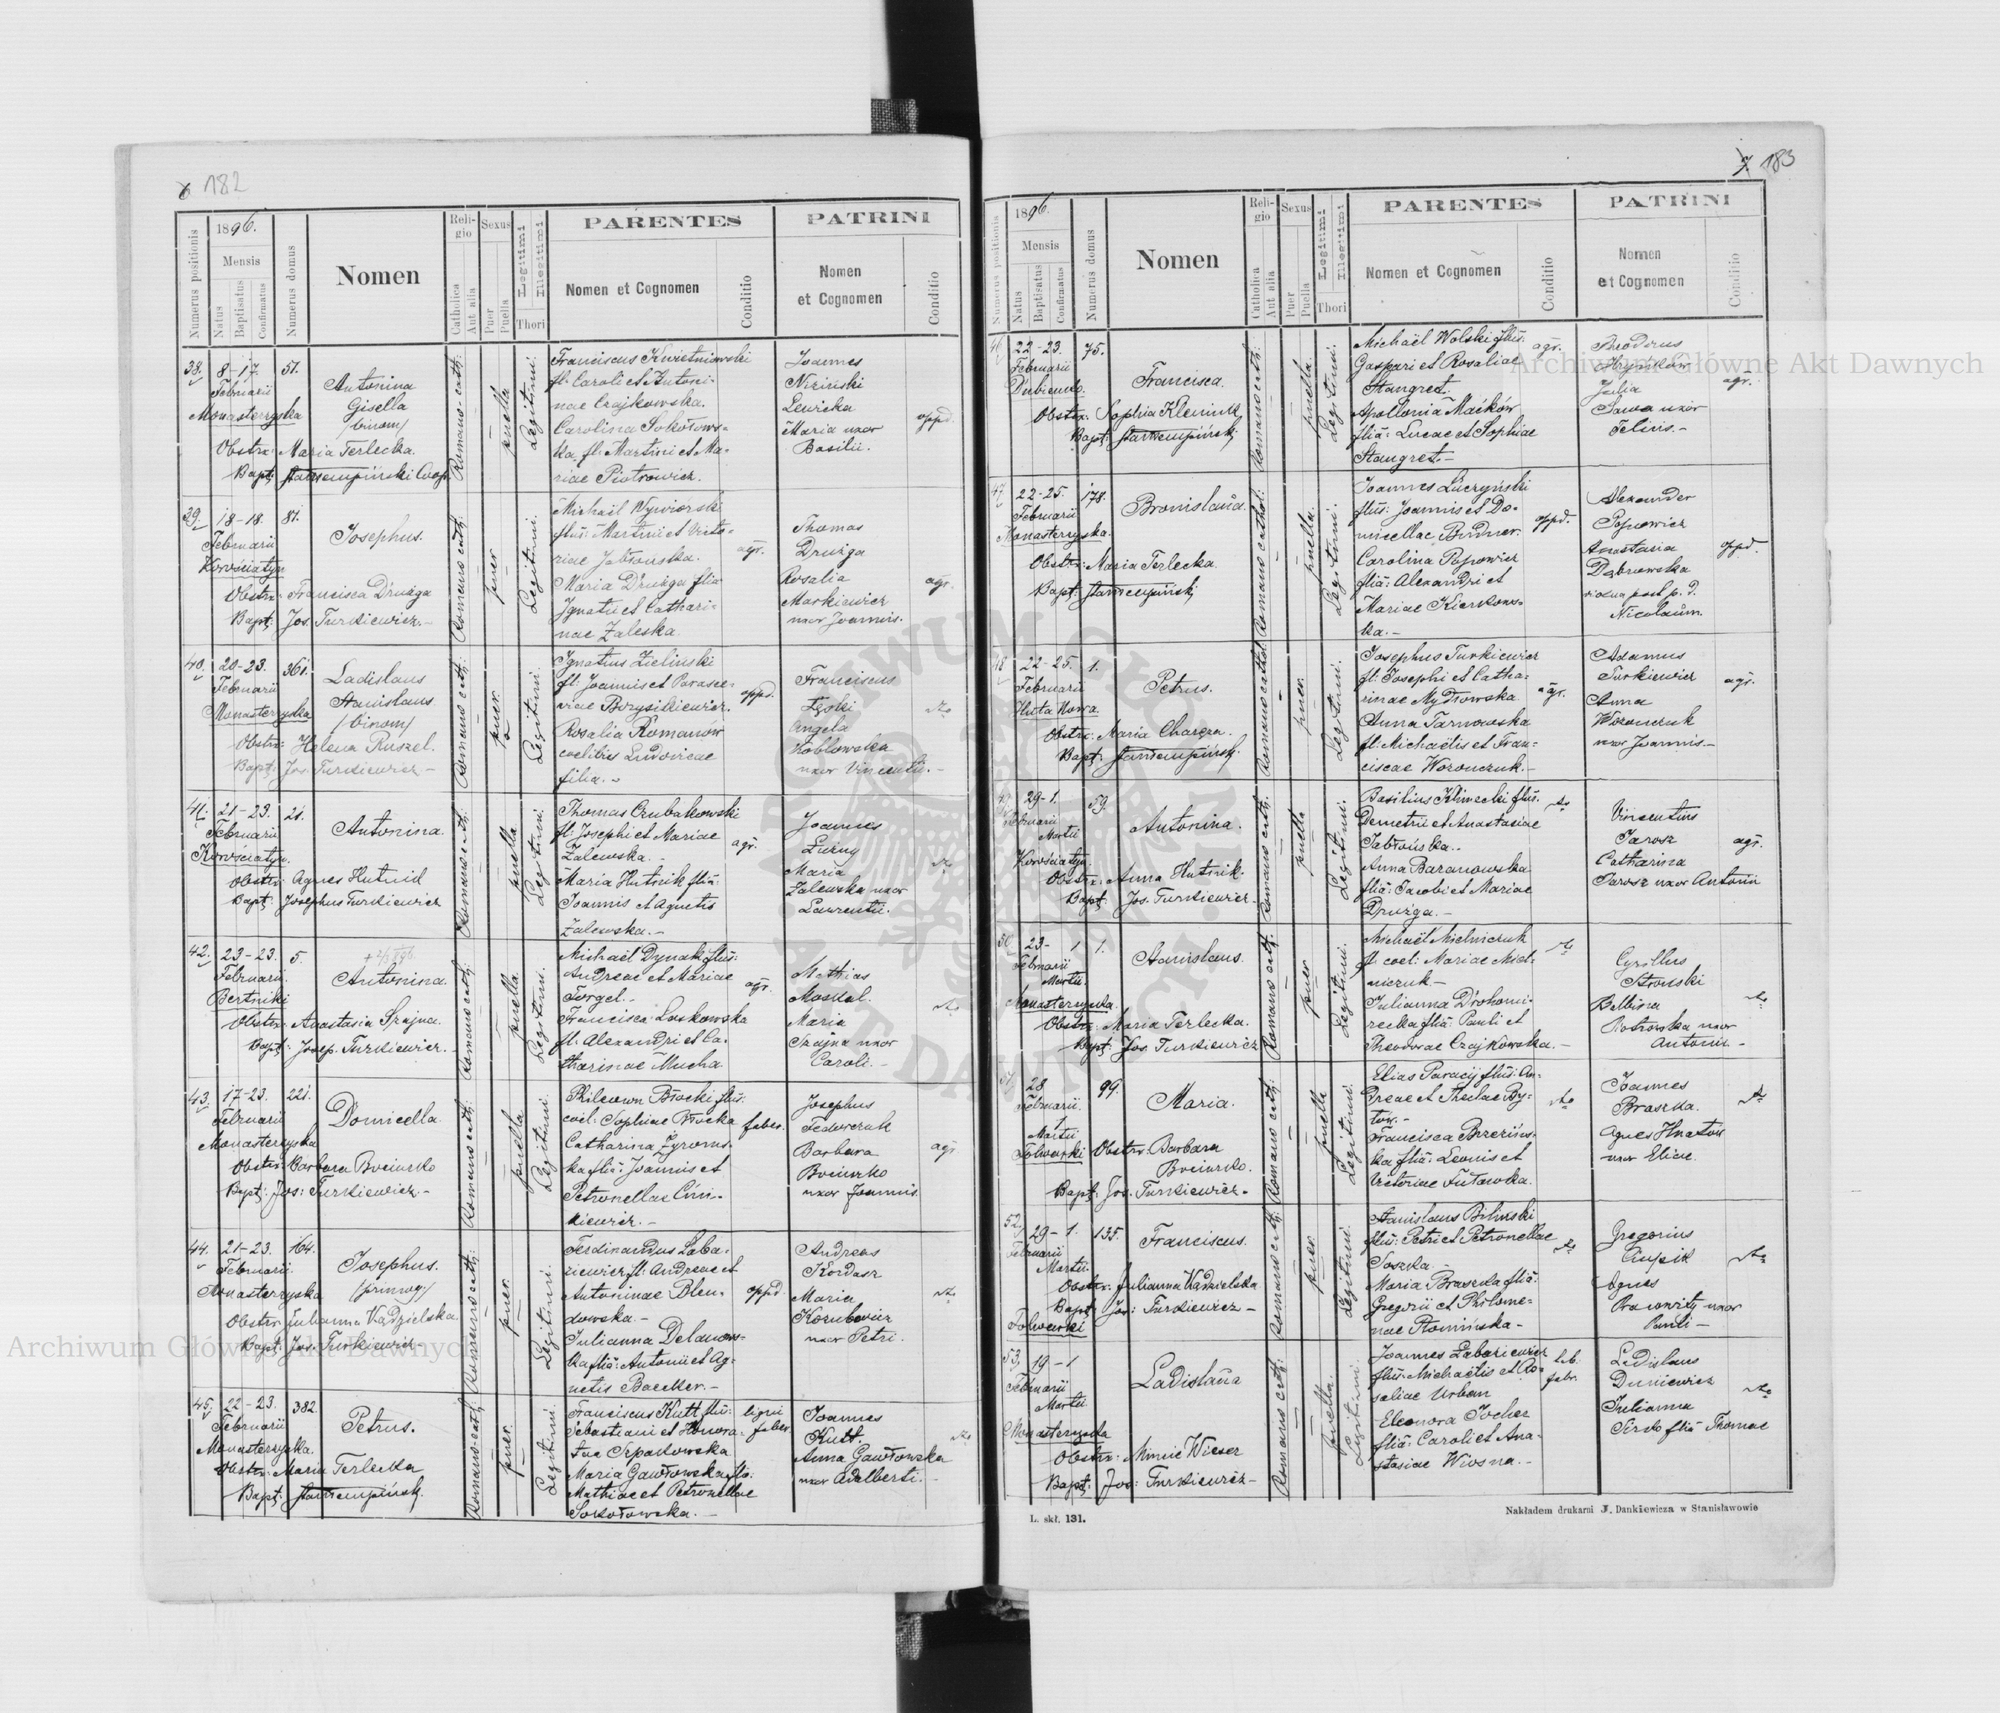 6 182
1896.
Numerus positionis
Mensis
Natus
Baptisatus
Confirmatus
Numerus domus
Nomen
Religio
Catholica
Aut alia
Sexus
Puer
Puella
Legitimi
Illegitimi
Thori
PARENTES
Nomen et Cognomen
Conditio
PATRINI
Nomen
et Cognomen
Conditio
38. 8-17. 51.
Februarii
Monasterzyska
Antonina
Gisella
/binom/
Obstx: Maria Terlecka.
Romano-cath:
puella
Legitimi.
Franciscus Kwietniowski
fl. Caroli et Antoni-
nae Czajkowska.
Carolina Sokołows-
ka, fl. Martini et Ma-
riae Piotrowicz.
Joannes
Niziński
Lewicka
Maria uxor
Basilii.
oppd.
39. 18-18. 81.
Februarii
Korościatyn
Josephus.
Obstx: Francisca Drużga
Bapt: Jos. Turkiewicz.-
Romano cath:
puer
Legitimi.
Michaël Wywiórski
flius: Martini et Victo-
riae Jabłońska.
Maria Drużga flia
Ignatii et Cathari-
nae Zaleska.
agr.
Thomas
Drużga
Rosalia
Markiewicz
uxor Joannis.
agr.
40. 20-23. 361.
Februarii
Monasterzyska
Ladislaus
Stanislaus
/binom/
Obstx: Helena Ruszel.
Bapt: Jos. Turkiewicz-
Romano cath:
puer.
Legitimi.
Ignatius Zieliński
fl: Joannis et Parasce-
viae Borysikiewicz.
Rosalia Romanów
coelibis Ludovicae
filia.-
oppd.
Franciscus
Łęski
Angela
Kobłowska
uxor Vincentii.-
41. 21-23. 21.
Februarii
Korościatyn.
Antonina.
Obstx: Agnes Hutnid
Bapt: Josephus Turkiewicz
Romano cath:
puella.
Legitimi.
Thomas Czubakowski
fl. Josephi et Mariae
Zalewska.-
Maria Hutnik flia:
Joannis et Agnetis
Zalewska.-
agr.
Joannes
Luzny
Maria
Zalewska uxor
Laurentii.
42. 23-23. 5.
Februarii.
Bertniki
Antonina.
Obstx: Anastasia Szajna.
Bapt: Josep. Turkiewicz.-
Romano cath:
puella.
Legitimi.
Michaël Dynak flius:
Andreae et Mariae
Torgel.-
Francisca Laskowska
fl: Alexandri et Ca-
tharinae Mucha.
agr.
Mathias
Moskal.
Maria
Szajna uxor
Caroli.-
43. 17-23. 221.
Februarii
Monasterzyska
Domicella.
Obstx: Barbara Bociurko
Bapt: Jos: Turkiewicz.-
Romano cath:
puella
Legitimi.
Philemon Błocki flius:
coel: Sophiae Błocka
Catharina Żyroms-
ka flia: Joannis et
Petronellae Cini-
kiewicz.-
faber.
Josephus
Fedorczuk
Barbara
Bociurko
uxor Joannis.
agr
44. 21-23. 164.
Februarii.
Monasterzyska
Josephus.
/primog:/
Obstx: Julianna Kądzielska.
Bapt: Jos: Turkiewicz-
Romano cath:
puer.
Legitimi.
Ferdinandus Łaba-
ziewicz fl: Andreae et
Antoninae Blen-
dowska.-
Julianna Delanows-
ka flia: Antonii et Ag-
netis Baecker.-
oppd.
Andreas
Kordasz
Maria
Korubowicz
uxor Petri.
45. 22-23. 382.
Februarii
Monasterzyska.
Petrus.
Obstx: Maria Terlecka
Romano-cath.
puer.
Legitimi.
Franciscus Kutt flius:
Sebastiani et Honora-
tae Szpakowska
Maria Gawłowska flia:
Mathiae et Petronellae
Sokołowska.-
ligni
faber.
Joannes
Kutt.
Anna Gawłowska
uxor Adalberti.-
7 183
1896.
Numerus positionis
Mensis
Natus
Baptisatus
Confirmatus
Numerus domus
Nomen
Religio
Catholica
Aut alia
Sexus
Puer
Puella
Legitimi
Illegitimi
Thori
PARENTES
Nomen et Cognomen
Conditio
PATRINI
Nomen
et Cognomen
Conditio
46. 22-23. 75.
Februarii
Dubienko.
Francisca.
Obstx: Sophia Kleinink,
Romano cath:
puella
Legitimi.
Michaël Wolski flius:
Gaspari et Rosaliae
Stangret.
Apollonia Maćków
flia: Lucae et Sophiae
Stangret.-
agr.
Theodorus
Hryńków
Julia
Sawa uxor
Felixis.-
agr.
47. 22-25. 178.
Februarii
Monasterzyska.
Bronislaua.
Obstx: Maria Terlecka.
Romano cathol:
puella.
Legitimi.
Joannes Łuczyński
flius: Joannis et Do-
micellae Budner.
Carolina Popowicz
flia: Alexandri et
Mariae Kierkows-
ka.-
oppd.
Alexander
Popowicz
Anastasia
Dąbrowska
vidua post p. d.
Nicolaum.
oppd.
48. 22-25. 1.
Februarii
Huta Nowa
Petrus.
Obstx: Maria Charęza.
Romano cathol:
puer.
Legitimi.
Josephus Turkiewicz
fl: Josephi et Catha-
rinae Mydłowska.
Anna Tarnowska
fl: Michaëlis et Fran-
ciscae Woronczuk.-
agr.
Adamus
Turkiewicz
Anna
Woronczuk
uxor Joannis.-
agr.
49. 29-1. 59.
Februarii
Martii
Korościatyn.
Antonina.
Obstx: Anna Hutnik.
Bapt: Jos. Turkiewicz-
Romano cath:
puella
Legitimi.
Basilius Klimecki flius.
Demetrii et Anastasiae
Jabłońska.
Anna Baranowska
flia: Jacobi et Mariae
Drużga.-
Vincentius
Jarosz
Catharina
Jarosz uxor Antonii
agr.
50. 23-1 1.
Februarii
Martii.
Monasterzyska.
Stanislaus.
Obstx: Maria Terlecka.
Bapt: Jos. Turkiewicz
Romano cath.
puer
Legitimi.
Michaël Mielniczuk
fl. coel: Mariae Miel-
niczuk.-
Julianna Drohomi-
recka flia: Pauli et
Theodorae Czajkowska.-
Cyrillus
Stroński
Balbina
Kotrowska uxor
Antonii-
51. 28 99.
Februarii.
1
Martii
Folwarki
Maria.
Obstx: Barbara
Bociurko.
Bapt: Jos. Turkiewicz.
Romano cath:
puella
Legitimi.
Elias Paracij flius: An-
dreae et Theclae By-
tow.-
Francisca Brzezińs-
ka flia: Leonis et
Victoriae Futowka.
Joannes
Braszka.
Agnes Hnatów
uxor Eliae.
52. 29-1. 135.
Februarii
Martii.
Folwarki
Franciscus.
Obstx: Julianna Kądzielska
Bapt: Jos: Turkiewicz-
Romano cath:
puer.
Legitimi.
Stanislaus Biliński
flius: Petri et Petronellae
Soszka.-
Maria Braszka flia:
Gregorii et Philome-
nae Słomińska-
Gregorius
Agnes
uxor
Pauli-
53. 19-1
Februarii
Martii
Monasterzyska
Ladislaua
Obstx: Minnie Wieser
Bapt: Jos: Turkiewicz-
Romano cath:
puella.
Legitimi.
Joannes Łabaziewicz
flius: Michaëlis et Ro-
saliae Urban
Eleonora Jocher
flia: Caroli et Ana-
stasiae Wiosna.-
fabr.
Ladislaus
Duniewicz
Julianna
flia Thomae
L. skł. 131.
Nakładem drukarni J. Dankiewicza w Stanisławowie
Archiwum Główne Akt Dawnych
Archiwum Główne Akt Dawnych
ARCHIWUM GŁÓWNE AKT DAWNYCH